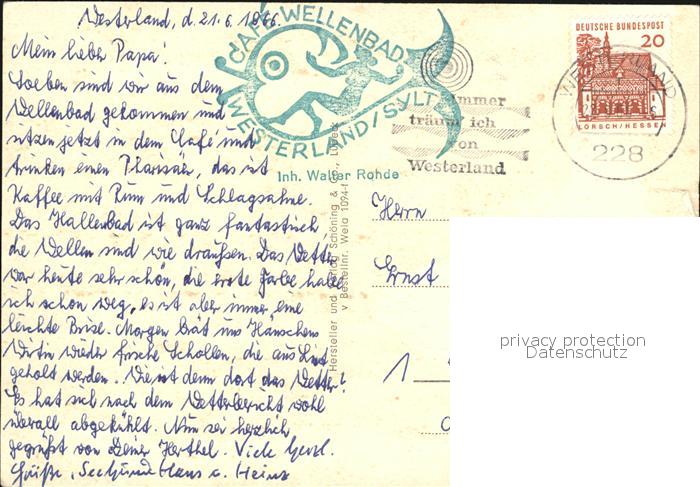 Westerland, d. 21.6.1966.
Mein lieber Papa!
Soeben sind wir aus dem
Wellenbad gekommen und
sitzen jetzt in dem Café und
trinken einen Pharisäer, das ist
Kaffee mit Rum und Schlagsahne.
Das Hallenbad ist ganz fantastisch
die Wellen sind wie draußen. Das Wetter
war heute sehr schön, die erste Farbe habe
ich schon weg, es ist aber immer eine
leichte Brise. Morgen brät uns Hänschens
Wirtin wieder frische Schollen, die aus
geholt werden. Wie ist denn dort das Wetter?
Es hat sich nach dem Wetterbericht wohl
überall abgekühlt. Nun sei herzlich
gegrüßt von Deiner Herthel. Viele herzl.
Grüße, Hans u. Heinz
CAFÉ WELLENBAD
WESTERLAND/SYLT
Inh. Walter Rohde
immer
träum ich
von
Westerland
DEUTSCHE BUNDESPOST
20
LORSCH/HESSEN
WESTERLAND
228
Hersteller und Verlag Schöning & Co., Lübeck
Bestellnr. Wela 1094
Herrn
Ernst
1
privacy protection
Datenschutz